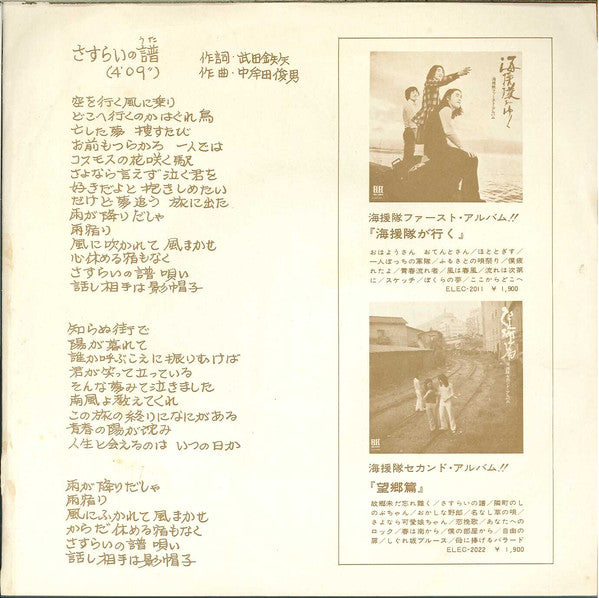 さすらいの譜
うた
(4'09")
作詞・武田鉄矢
作曲・中牟田俊男
空を行く風に乗り
どこへ行くのかはぐれ鳥
亡した夢 捜すたび
お前もつらかろ 一人では
コスモスの花咲く駅
さよなら言えず泣く君を
好きだよと抱きしめたい
だけど夢追う 旅に出た
雨が降りだしゃ
雨宿り
風に吹かれて 風まかせ
心休める宿もなく
さすらいの譜 唄い
話し相手は影帽子
知らぬ街で
陽が暮れて
誰か呼ぶこえに振りむけば
君が笑って立っている
そんな夢みて泣きました
南風よ教えてくれ
この旅の終りになにがある
青春の陽が沈み
人生と会えるのは いつの日か
雨が降りだしゃ
雨宿り
風にふかれて 風まかせ
からだ休める宿もなく
さすらいの譜 唄い
話し相手は影帽子
海援隊がゆく
海援隊ファースト・アルバム
海援隊ファースト・アルバム!!
『海援隊が行く』
おはようさん おてんとさん/ほととぎす/
一人ぼっちの軍隊/ふるさとの唄祭り/僕疲
れたよ/青春流れ者/風は春風/流れは次第
に/スケッチ/ぼくらの夢/ここからどこへ
ELEC-2011 ¥1,900
望郷篇
海援隊セカンド・アルバム!!
『望郷篇』
故郷未だ忘れ難く/さすらいの譜/隣町のし
のぶちゃん/おかしな野郎/名なし草の唄/
さよなら可愛娘ちゃん/恋挽歌/あなたへの
ロック/春は南から/僕の部屋から/自由の
扉/しぐれ坂ブルース/母に捧げるバラード
ELEC-2022 ¥1,900